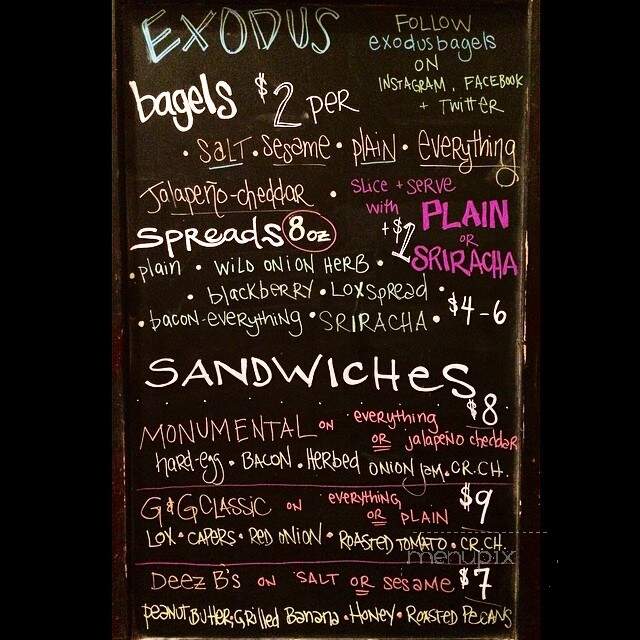 EXODUS
FOLLOW
exodusbagels
ON
INSTAGRAM, FACEBOOK
+ TWITTER
bagels $2 PER
• SALT • SESAME • PLAIN • EVERYTHING
JALAPEÑO-CHEDDAR •
SLICE + SERVE
with +$1 PLAIN
OR
SRIRACHA
SPREADS 8oz
• plain • WILD ONION HERB •
• blackbeRRY • LOXSPREAD •
• bacon-everything • SRIRACHA • $4-6
SANDWICHES
$8
MONUMENTAL ON everything
OR jalapeño cheddar
hard-egg • BACON • Herbed ONION JAM • CR.CH.
G&G CLASSIC ON everything $9
OR PLAIN
LOX • CAPERS • RED ONION • ROASTED TOMATO • CR.CH.
menupix
Deez B's ON SALT OR SESAME $7
PEANUT BUTTER • GRilled Banana • Honey • ROASTED PECANS